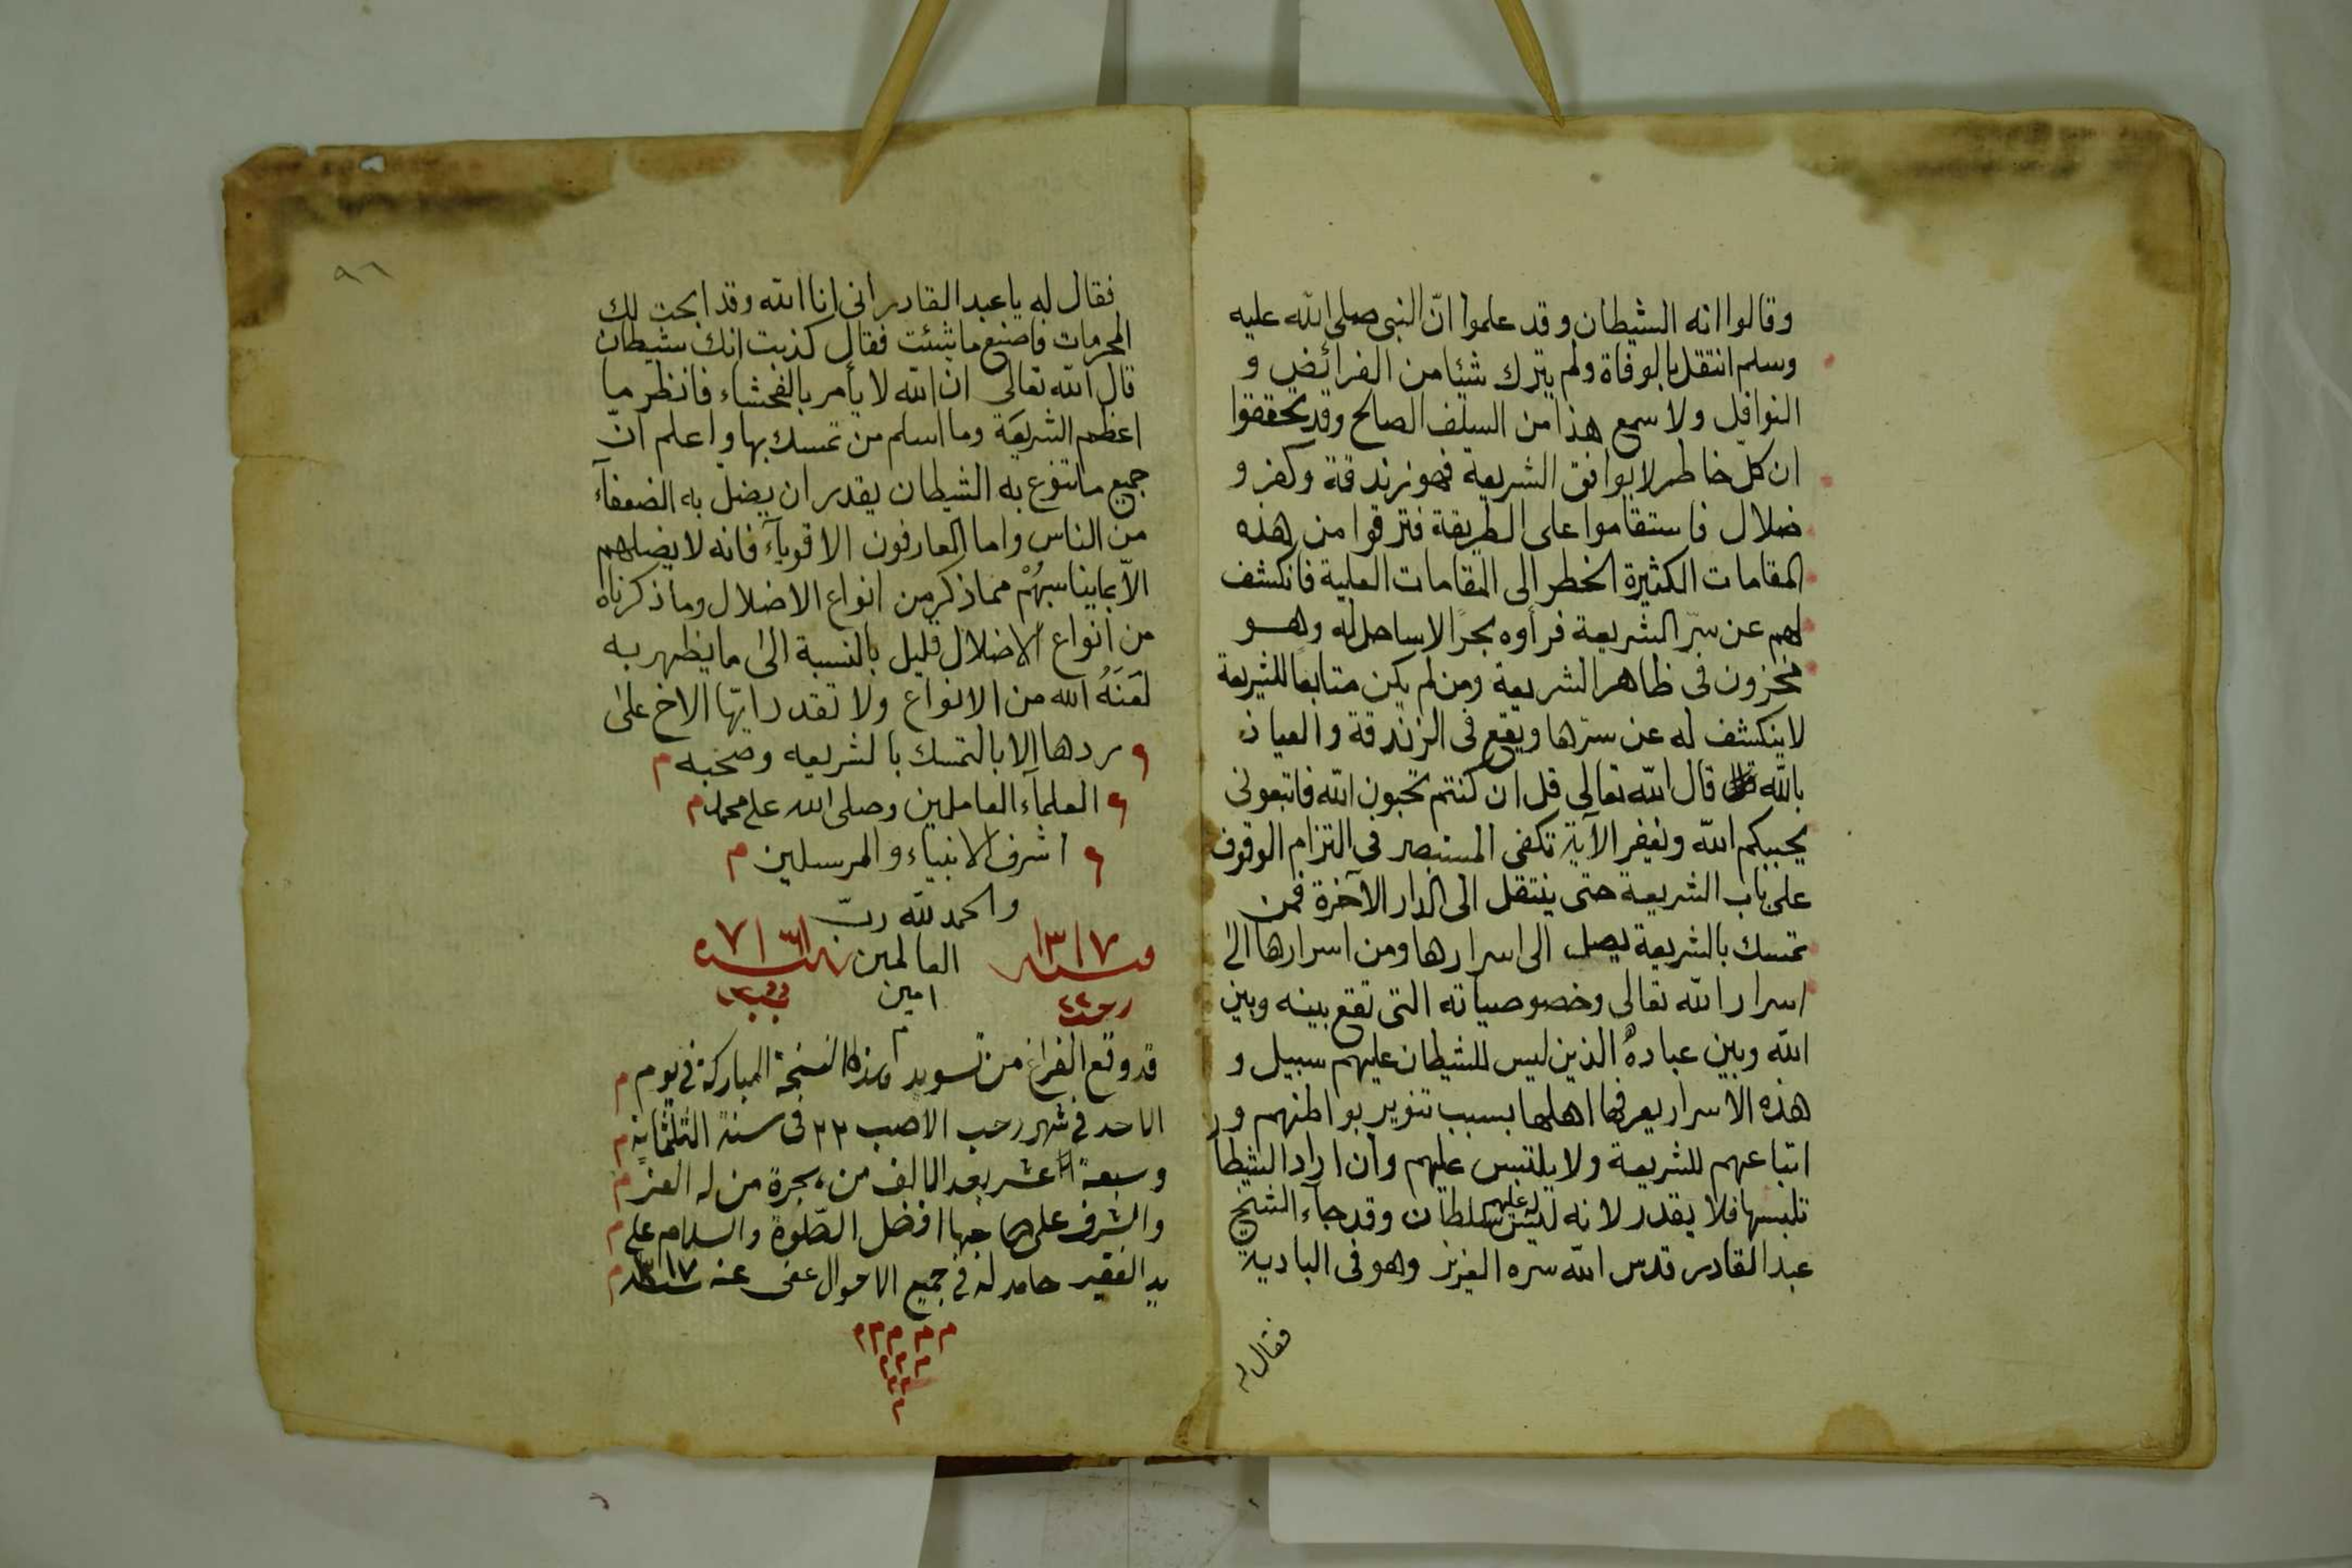 وقالوا انه الشيطان وقد علموا انّ النبى صلى الله عليه
وسلم انتقل بالوفاة ولم يترك شيئا من الفرائض و
النوافل ولا سمع هذا من السلف الصالح وقد تحققوا
ان كلّ خاطر لا يوافق الشريعة فهو زندقة وكفر و
ضلال فاستقاموا على الطريقة فترقوا من هذه
المقامات الكثيرة الخطر الى المقامات العلية فانكشف
لهم عن سرّ الشريعة فرأوه بحرًا لا ساحل له وهو
مخزون فى ظاهر الشريعة ومن لم يكن متابعًا للشريعة
لا ينكشف له عن سترها ويقع فى الزندقة والعياذ
بالله قال الله تعالى قل ان كنتم تحبون الله فاتبعونى
يحببكم الله ونغفر الآية تكفى المستبصر فى التزام الوقوف
على باب الشريعة حتى ينتقل الى الدار الآخرة فمن
تمسك بالشريعة يصل الى اسرارها ومن اسرارها الى
اسرار الله تعالى وخصوصياته التى تقع بينه وبين
الله وبين عباده الذين ليس للشيطان عليهم سبيل و
هذه الاسرار يعرفها اهلها بسبب تنوير بواطنهم و
اتباعهم للشريعة ولا يلتبس عليهم وان اراد الشيطا
تلبسها فلا يقدر لانه ليس له عليهم سلطان وقد جاء الشيخ
عبد القادر قدس الله سره العزيز وهو فى البادية
فقال له
٩٦
فقال له يا عبد القادر انى انا الله وقد ابحت لك
المحرمات فاصنع ما شئت فقال كذبت انك شيطان
قال الله تعالى ان الله لا يأمر بالفحشاء فانظر ما
اعظم الشريعة وما اسلم من تمسك بها واعلم انّ
جميع ما تنوع به الشيطان يقدر ان يضل به الضعفآء
من الناس واما العارفون الاقويآء فانه لا يضلهم
الاّ بما يناسبهُمْ مما ذكر من انواع الاضلال وما ذكرناه
من انواع الاضلال قليل بالنسبة الى ما يظهر به
لعَنَهُ الله من الانواع ولا تقدر ايّها الاخ على
ردها الا بالتمسك بالشريعه وصحبه م
العلمآء العاملين وصلى الله على محمد م
اشرف الانبياء والمرسلين م
والحمد لله ربّ
١٣١٧ العالمين ١٣١٧
رجب ٢٢ امين
م
قد وقع الفراغ من تسويد هذا النسخة المباركة فى يوم م
الاحد فى شهر رجب الاصب ٢٢ فى سنة الثلثمائة م
وسبعة عشر بعد الالف من هجرة من له العز م
والشرف على صاحبها افضل الصّلوة والسلام على م
يد الفقير حامد له فى جميع الاحوال عفى عنه سنه ١٣١٧ م
م م م م م
م م م
م م
م